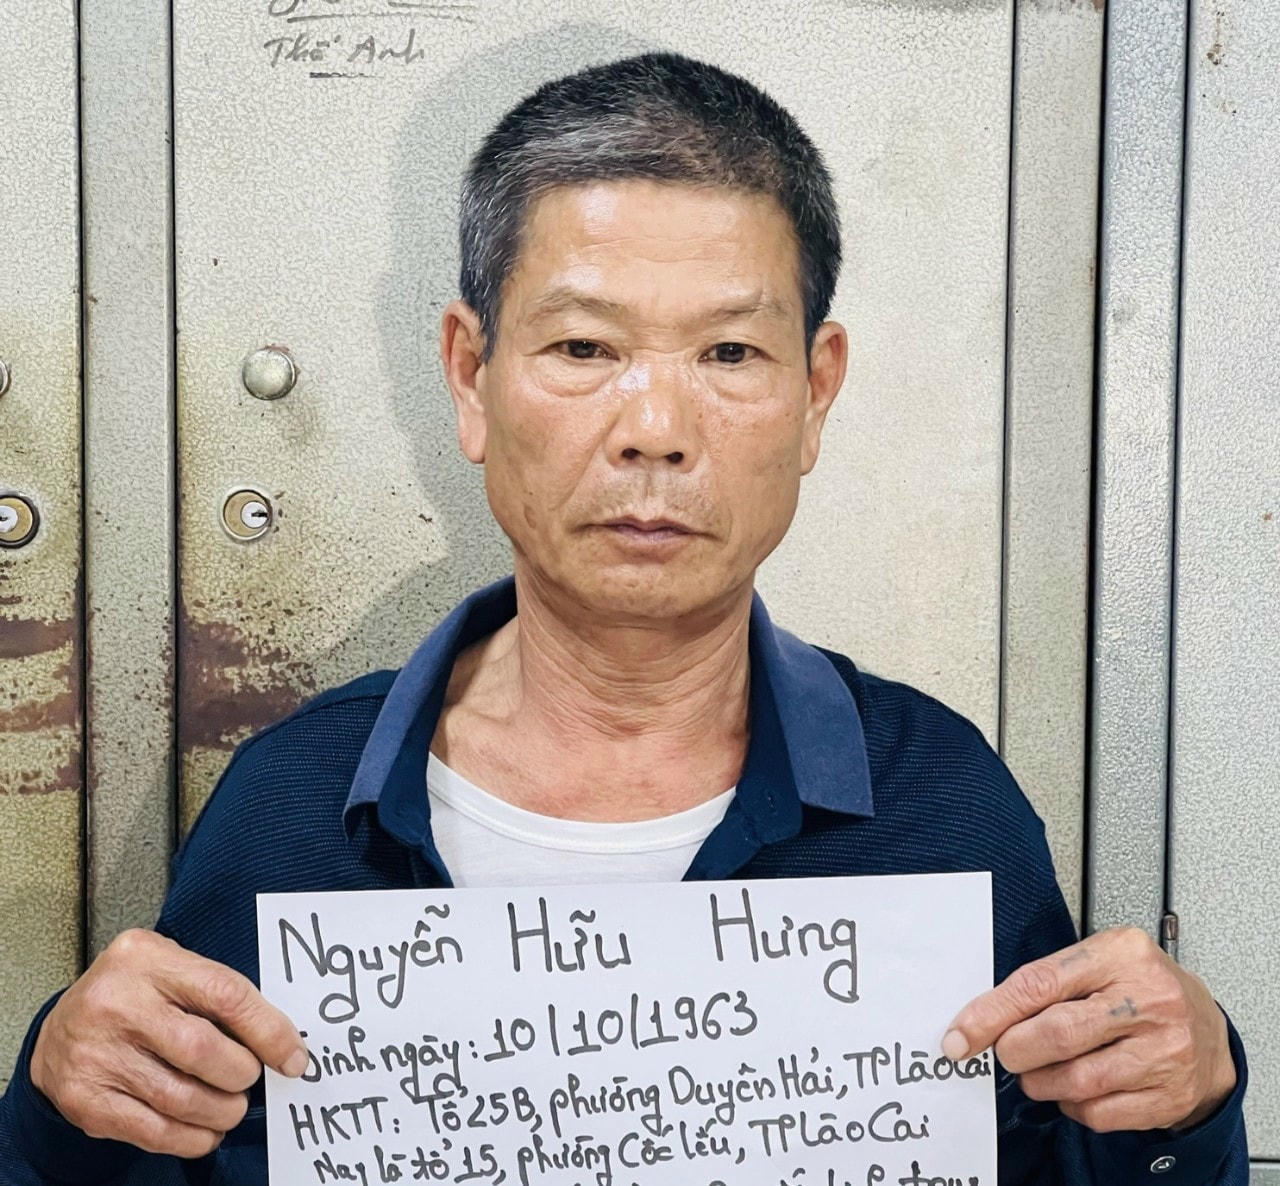 Thế Anh
Nguyễn Hữu Hưng
Sinh ngày: 10/10/1963
HKTT: Tổ 25B, phường Duyên Hải, TP Lào Cai
Nay là tổ 15, phường Cốc Lếu, TP Lào Cai